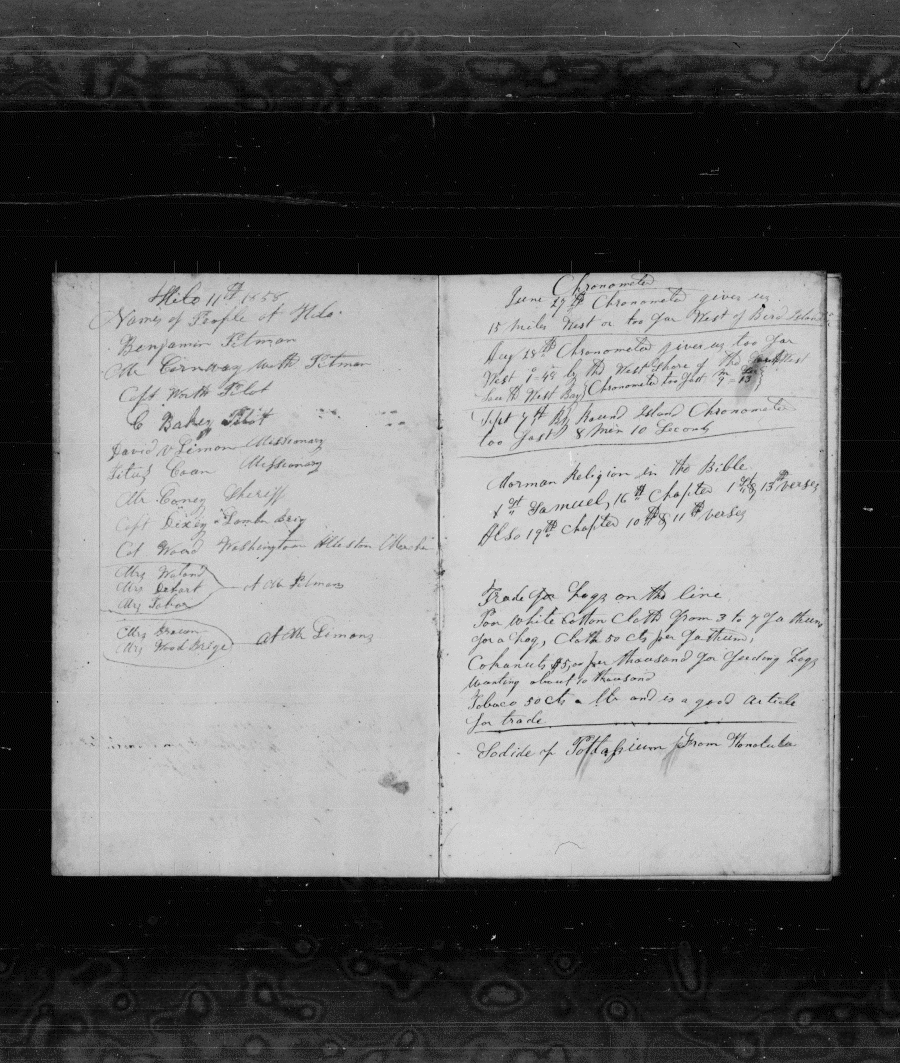 Hilo 11th 1858
Names of People of Hilo
Benjamin Pitman
Mr Cornway with Pitman
Capt Worth Pilot
C Bakey Pilot
David Limon Missionary
Titus Coan Missionary
Mr Coney Sheriff
Capt Dixey Lambn Brig
Col Wood Washington Allston
Mrs Waland
Mrs Dehart
Mrs Tabor
At Mr Pitmans
Mrs Brown
Mrs Wood Brige
at Mr Limans
Chronometer
June 29th Chronometer gives us
15 miles West or too far West of Bird Island
Aug 28th Chronometer gives us too far
West 1°-48 by the West Shore of the
South West Bay Chronometer too fast 9 = 13
Sept 7th By Round Island Chronometer
too fast 8 Min 10 Seconds
Morman Religion in the Bible
1st Samuel, 16th Chapter 1st & 13th verses
Also 19th Chapter 10th & 11th verses
Trade for hogs on the line
Poor White Cotton Cloth from 3 to 7 fathum
for a hog, Cloth 50 cts per fathum,
Cokanuts $5,00 per thousand for feeding hogs
wanting about 10 thousand
Tobaco 50 cts a lb and is a good article
for trade
Iodide of Pottassium from Honolulu